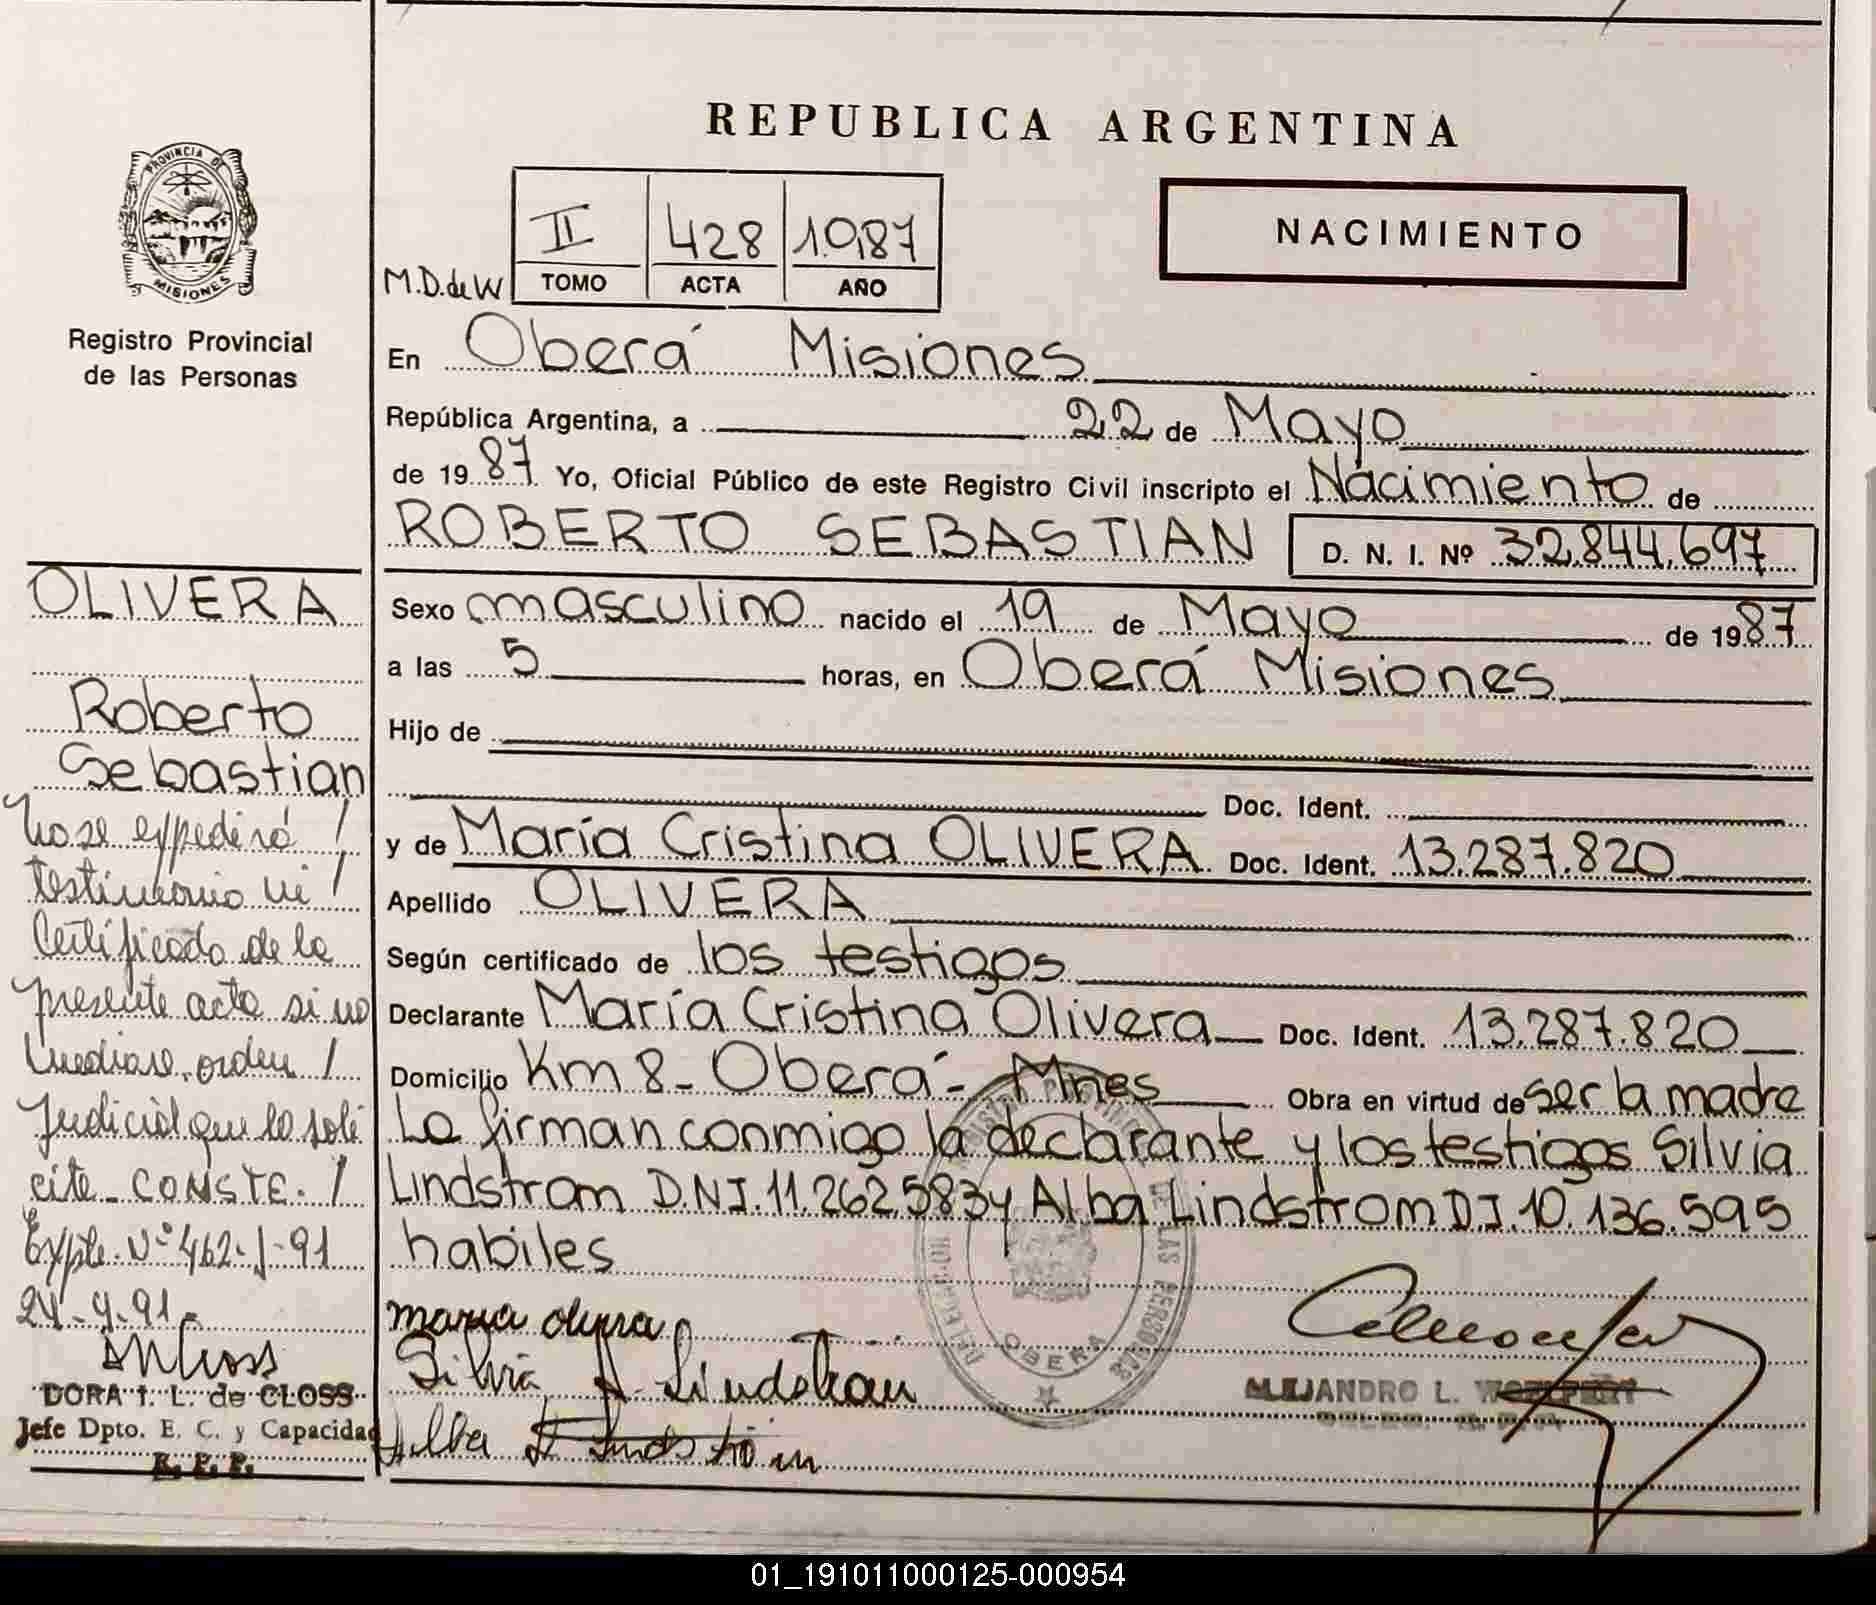 REPUBLICA ARGENTINA
PROVINCIA DE
MISIONES
Registro Provincial
de las Personas
II 428 1.987
M.D. de W TOMO ACTA AÑO
NACIMIENTO
En Oberá Misiones
República Argentina, a 22 de Mayo
de 1987 Yo, Oficial Público de este Registro Civil inscripto el Nacimiento de
ROBERTO SEBASTIAN D. N. I. Nº 32.844.697
Sexo masculino nacido el 19 de Mayo de 1987
a las 5 horas, en Oberá Misiones
Hijo de
Doc. Ident.
y de María Cristina OLIVERA Doc. Ident. 13.287.820
Apellido OLIVERA
Según certificado de los testigos
Declarante María Cristina Olivera Doc. Ident. 13.287.820
Domicilio Km 8 - Oberá - Mnes Obra en virtud de ser la madre
La firman conmigo la declarante y los testigos Silvia
Lindstrom D.N.I. 11.262.583 y Alba Lindstrom D.I. 10.136.595
habiles
maria olivera
Silvia A. Lindstrom
Alba Lindstrom
OBERA
ALEJANDRO L.
OLIVERA
Roberto
Sebastian
No se expedirá /
testimonio ni /
Certificado de la
presente acta si no
mediare orden /
Judicial que lo soli
cite - CONSTE. /
Expte. Nº 462-J-91
24-9-91.-
DORA I. L. de CLOSS
Jefe Dpto. E. C. y Capacidad
R. P. P.
01_191011000125-000954